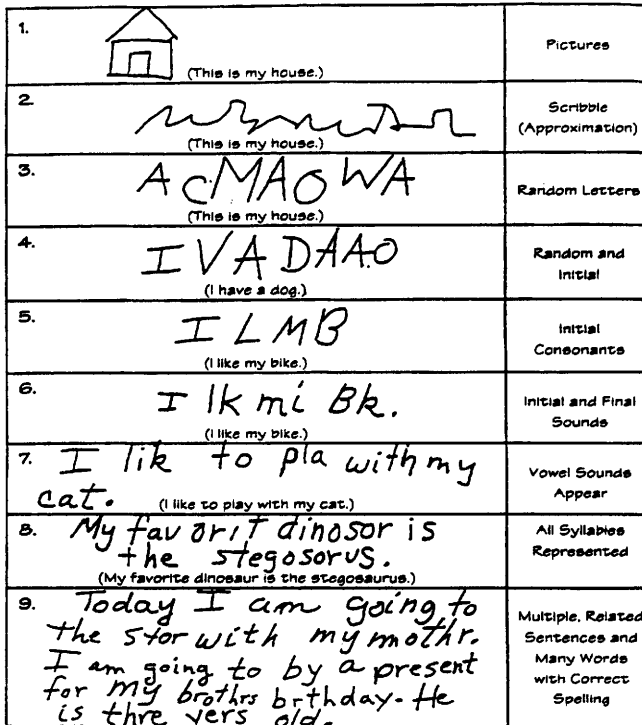 1.
(This is my house.)
Pictures
2.
(This is my house.)
Scribble
(Approximation)
3.
A c M A O W A
(This is my house.)
Random Letters
4.
I V A D A A O
(I have a dog.)
Random and
Initial
5.
I L M B
(I like my bike.)
Initial
Consonants
6.
I lk mi Bk.
(I like my bike.)
Initial and Final
Sounds
7.
I lik to pla with my
cat.
(I like to play with my cat.)
Vowel Sounds
Appear
8.
My favorit dinosor is
the stegosorus.
(My favorite dinosaur is the stegosaurus.)
All Syllables
Represented
9.
Today I am going to
the stor with my mothr.
I am going to by a present
for my brothrs brthday. He
is thre yers old.
Multiple, Related
Sentences and
Many Words
with Correct
Spelling